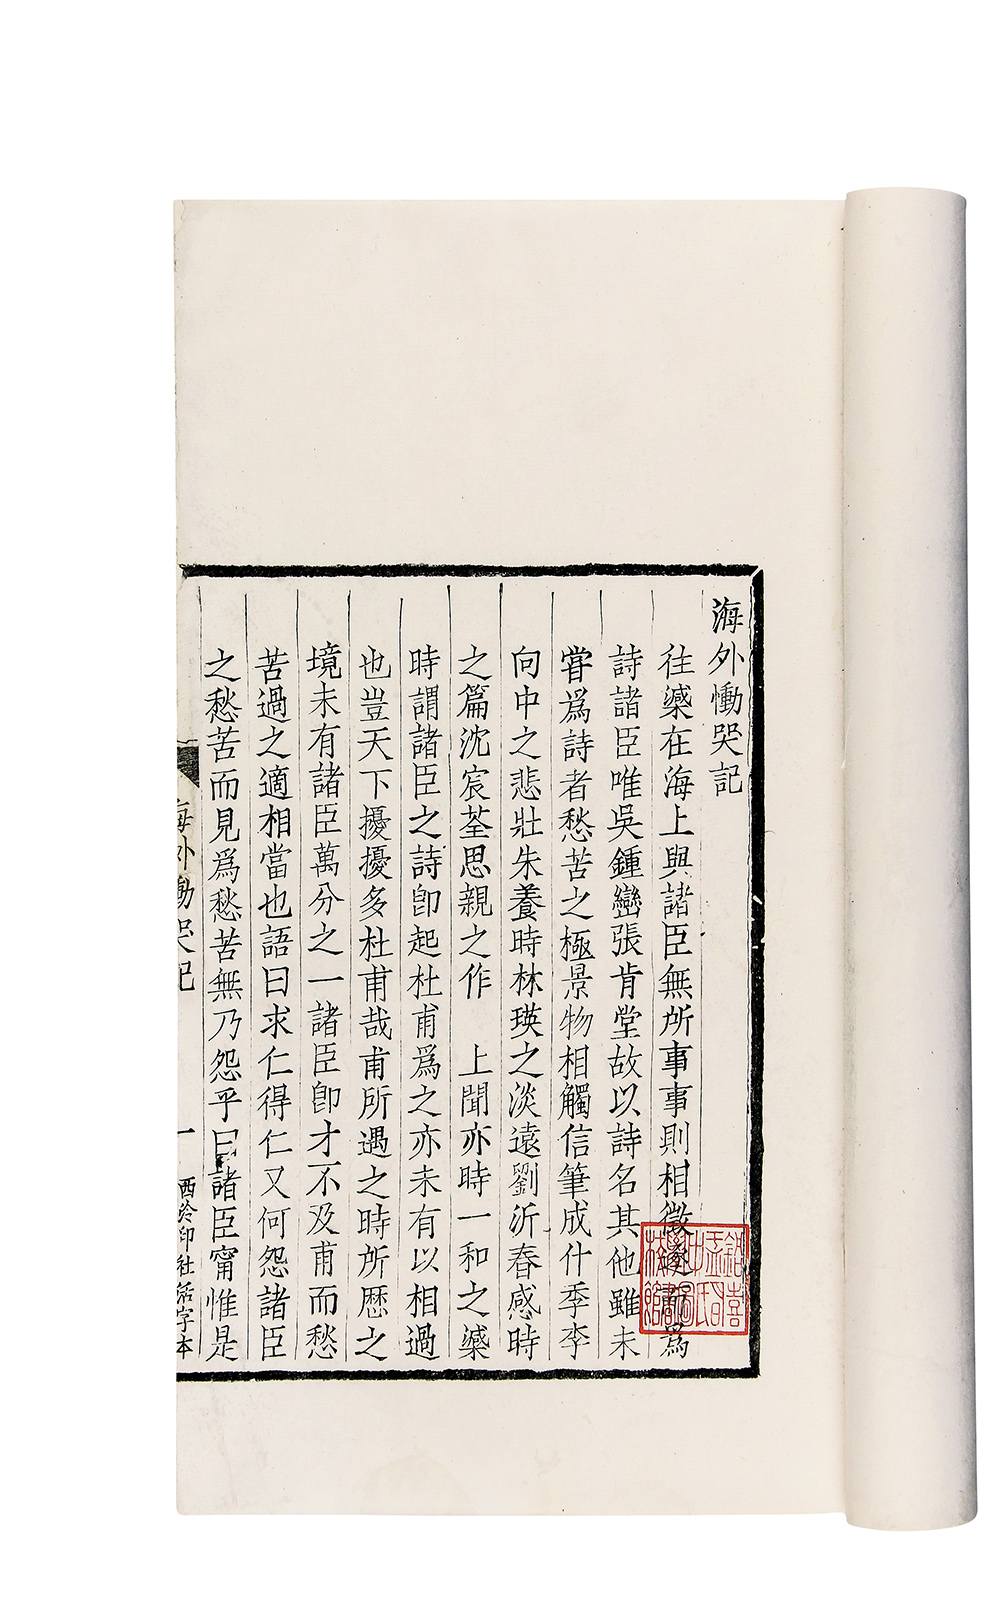 海外慟哭記
往在海上與諸臣無所事事則相徵逐而爲
詩諸臣唯吳鍾巒張肯堂故以詩名其他雖未
甞爲詩者愁苦之極景物相觸信筆成什季李
向中之悲壯朱養時林瑛之淡遠劉沂春感時
之篇沈宸荃思親之作　上聞亦時一和之
時謂諸臣之詩卽起杜甫爲之亦未有以相過
也豈天下擾擾多杜甫哉甫所遇之時所歷之
境未有諸臣萬分之一諸臣卽才不及甫而愁
苦過之適相當也語曰求仁得仁又何怨諸臣
之愁苦而見爲愁苦無乃怨乎曰諸臣甯惟是
海外慟哭記
一
西泠印社活字本